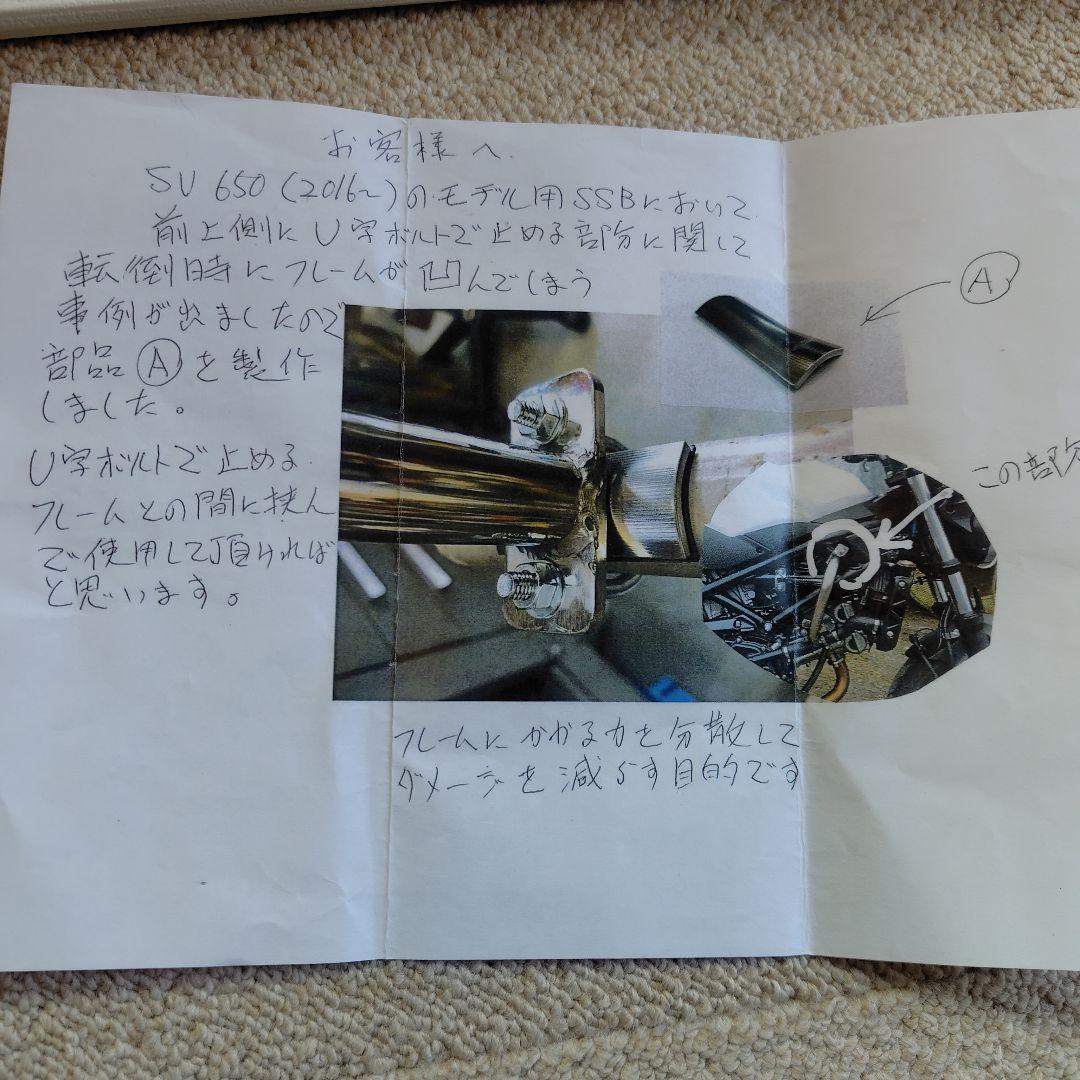 お客様へ.
SV650(2016~)のモデル用SSBにおいて.
前上側にU字ボルトで止める部分に関して
転倒時にフレームが凹んでしまう
事例が出ましたので
部品Ⓐを製作
しました。
Ⓐ
U字ボルトで止める.
フレームとの間に挟ん
で使用して頂ければ
と思います。
この部分
フレームにかかる力を分散して
ダメージを減らす目的です